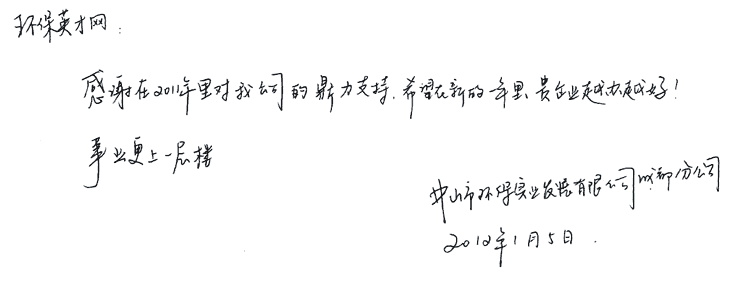 环保英才网：
感谢在2011年里对我公司的鼎力支持，希望在新的一年里，贵企业越办越好！
事业更上一层楼
中山市环保实业发展有限公司成都分公司
2012年1月5日.